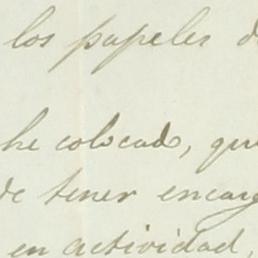 los papeles de
he colocado, que
de tener encarg
en actividad,